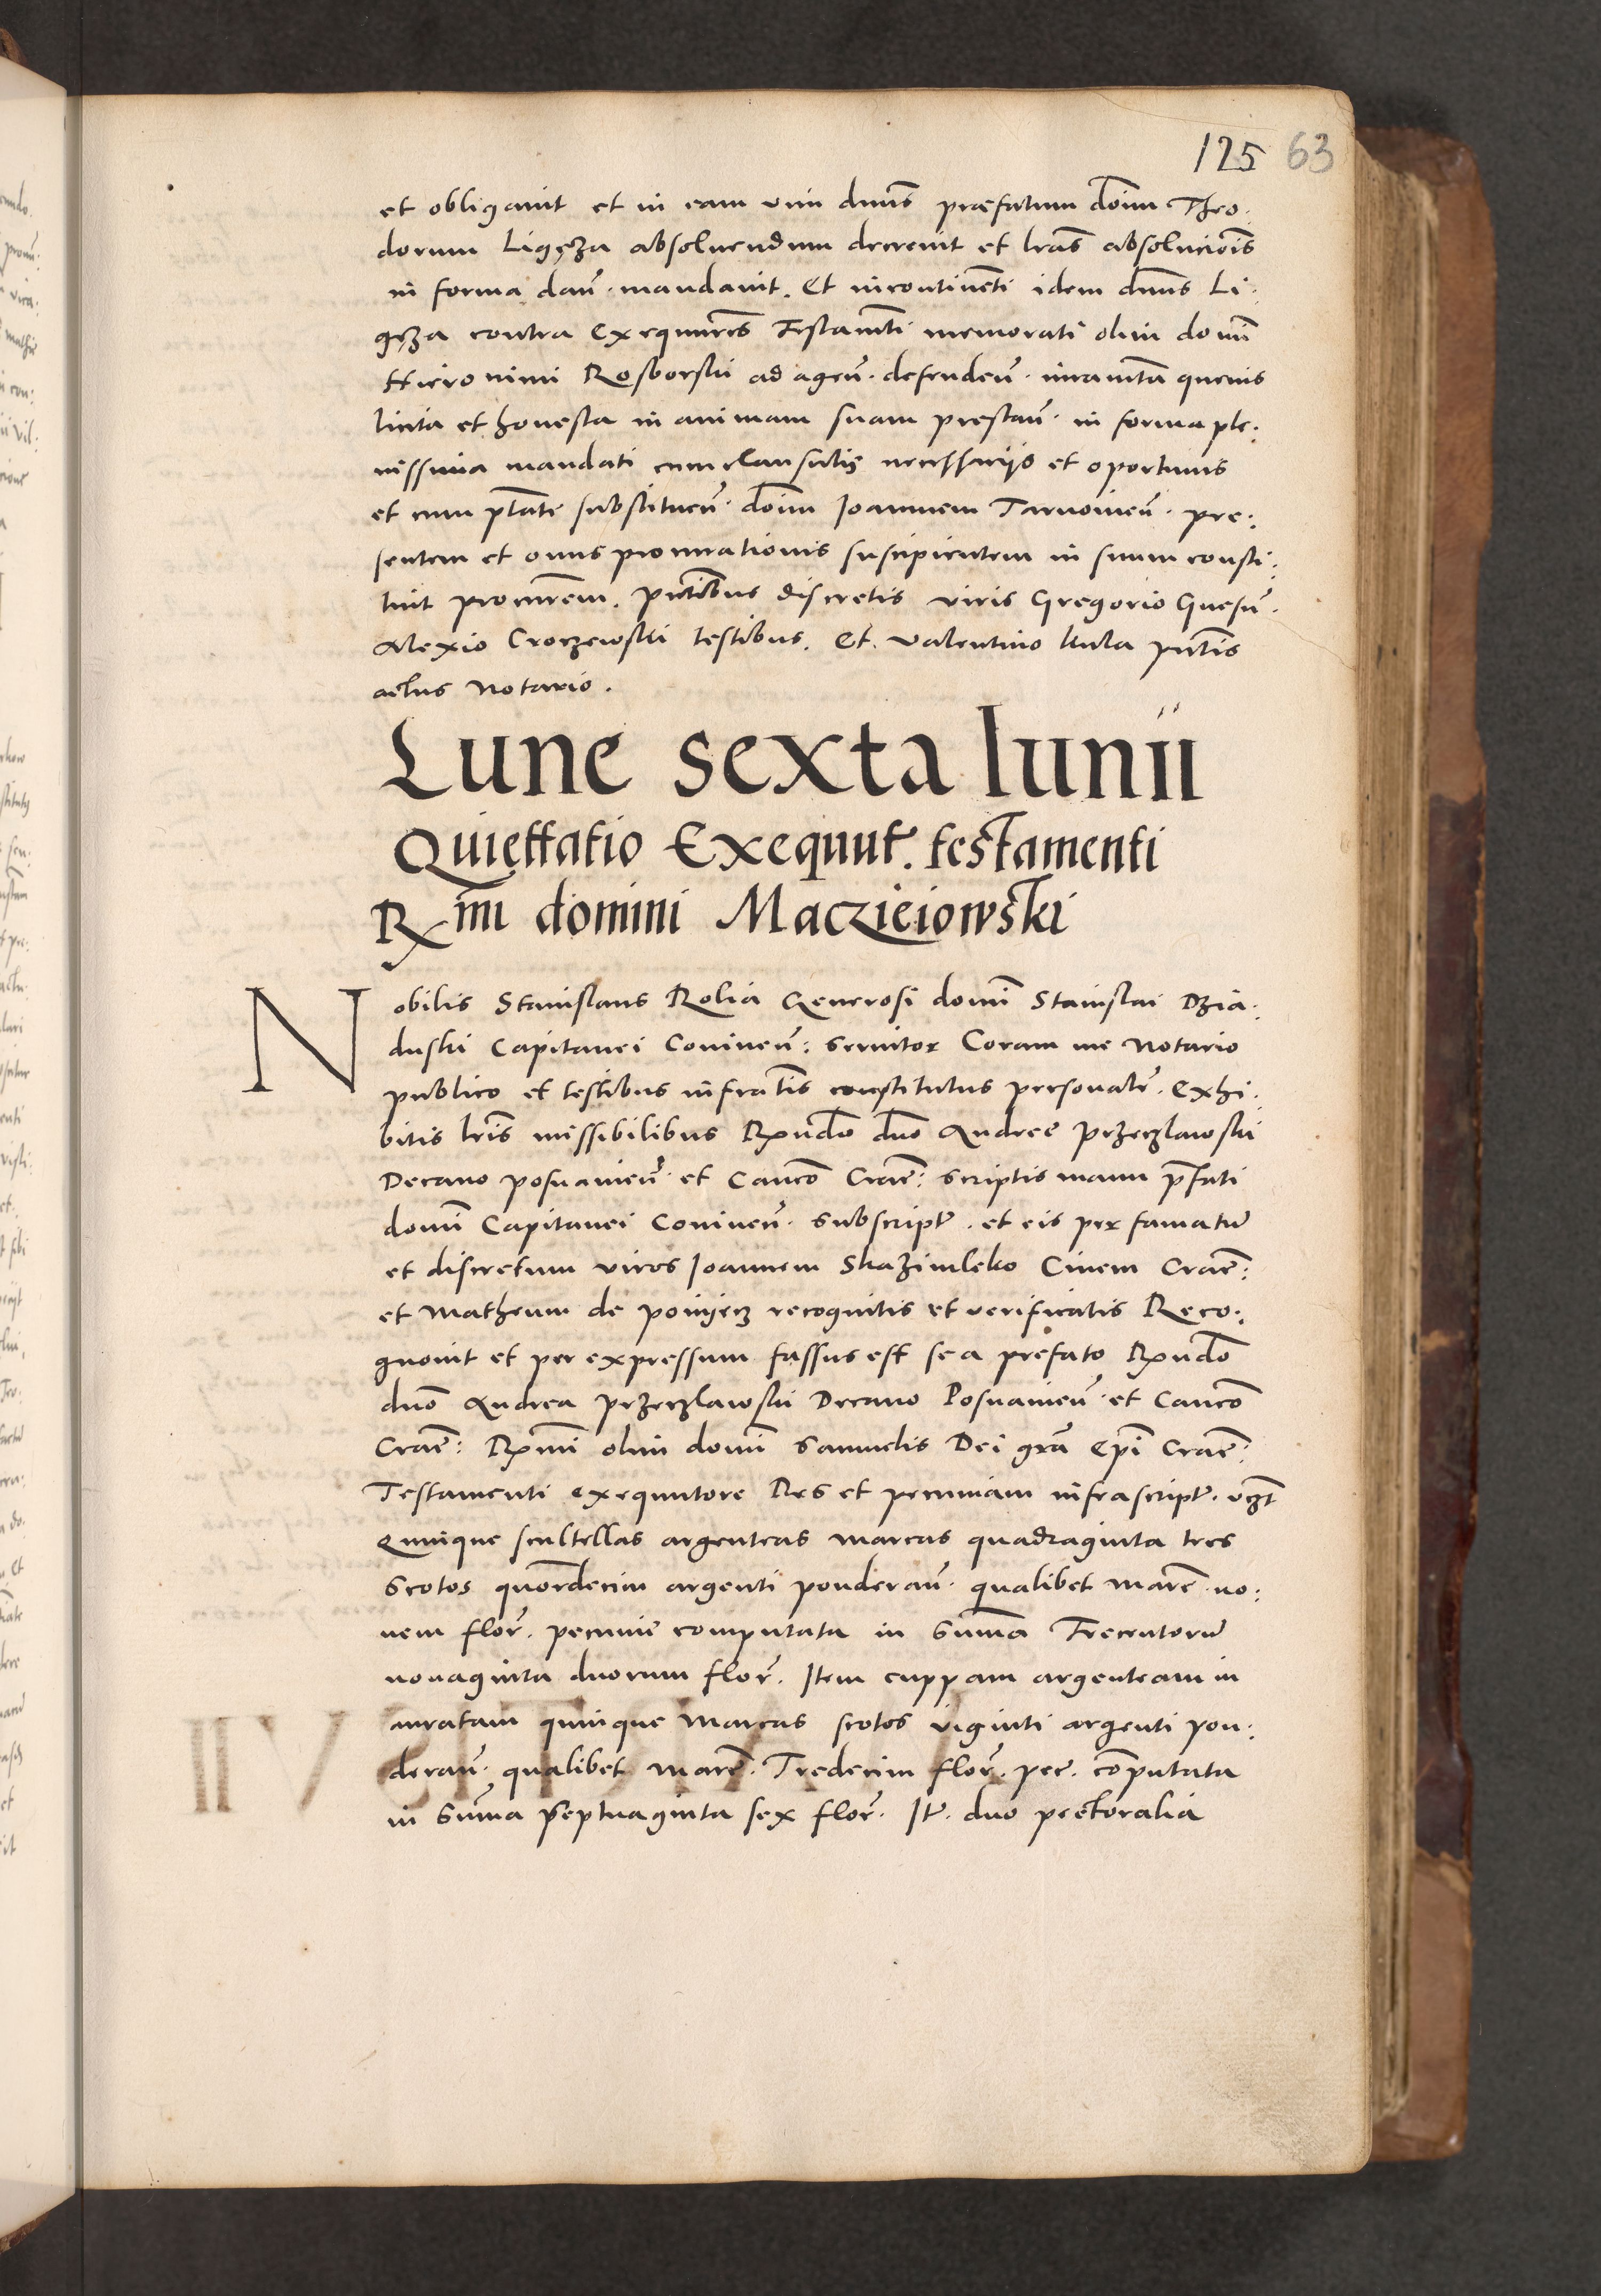 125 63
et obligavit et in eam vim dnus præfatum doīm Theo.
dorum Ligęza absoluendum decrevit et lrās absolucioīs
in forma dań. mandavit. Et incontineṅti idem dnus Li.
gęza contra Exequutores Testamti memorati olim domī
Hieronimi Rosborski ad ageń. defendeń. iuramta quevis
licita et honesta in animam suam prestań. in forma ple.
nissima mandati cum clausulis necessarijs et oportunis
et cum ptate substitueń. doīm Joannem Tarnovień. pre.
sentem et onus procurationis suscipientem in suum consti.
tuit procurem. pntibus discretis viris Gregorio Gnesń.
Alexio Croczewski testibus. Et. Valentino Kula pntis
actus Notario.
Lune sexta Iunii
Quiettatio Exequut. testamenti
Rmi domini Maczieiowski
Nobilis Stanislaus Rolia Generosi domī Stanislai Dzia.
duski Capitanei Conineń: servitor Coram me Notario
publico et testibus infratis constitutus personalr. Exhi.
bitis lris missibilibus Rndo duo Andree Przeczlawski
Decano posnanień. et Canco Crac: scriptis manu pfati
domī Capitanei Conineń. subscript. et eis per famatū
et discretum viros Joannem Skazimleko Civem Crac:
et Matheum de poniecz recognitis et verificatis Reco.
gnovit et per expressum fassus est se a prefato Rndo
dno Andrea Przeczlawski Decano Posnanień. et Canco
Crac: Rmi olim domī Samuelis Dei grā Epī Crac:
Testamenti exequutore Res et pecuniam infrascript. vzt
Quinque scultellas argenteas marcas quadraginta tres
scotos quordecim argenti ponderań. qualibet marc. no.
vem flor. pecunie computata in Summa Trecentorū
nonaginta duorum flor. Item cuppam argenteam in
auratam quinque marcas scotos viginti argenti pon.
derań. qualibet marc. Tredecim flor. pec. computata
in Summa septuaginta sex flor. It. duo pectoralia